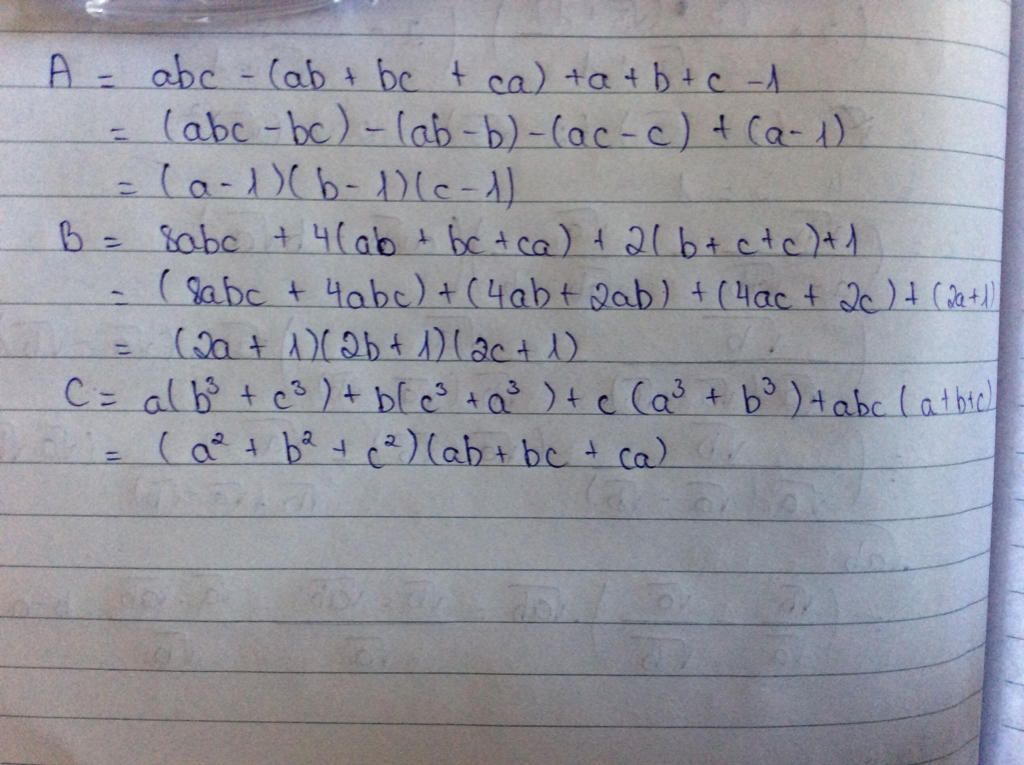 A = abc - (ab + bc + ca) + a + b + c - 1
= (abc - bc) - (ab - b) - (ac - c) + (a - 1)
= (a - 1)(b - 1)(c - 1)
B = 8abc + 4(ab + bc + ca) + 2(b + c + c) + 1
= (8abc + 4abc) + (4ab + 2ab) + (4ac + 2c) + (2a + 1)
= (2a + 1)(2b + 1)(2c + 1)
C = a(b³ + c³) + b(c³ + a³) + c(a³ + b³) + abc(a + b + c)
= (a² + b² + c²)(ab + bc + ca)